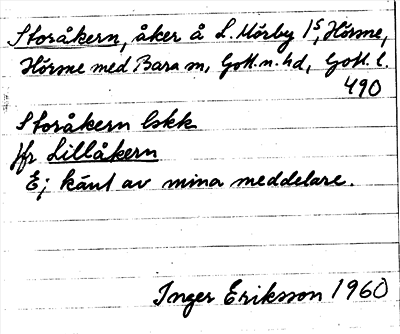 Storåkern, åker å L. Mörby 1⁵, Hörsne,
Hörsne med Bara sn, Gotl. n. hd, Gotl. l.
490
Storåkern lskk
Jfr Lillåkern
Ej känt av mina meddelare.
Inger Eriksson 1960